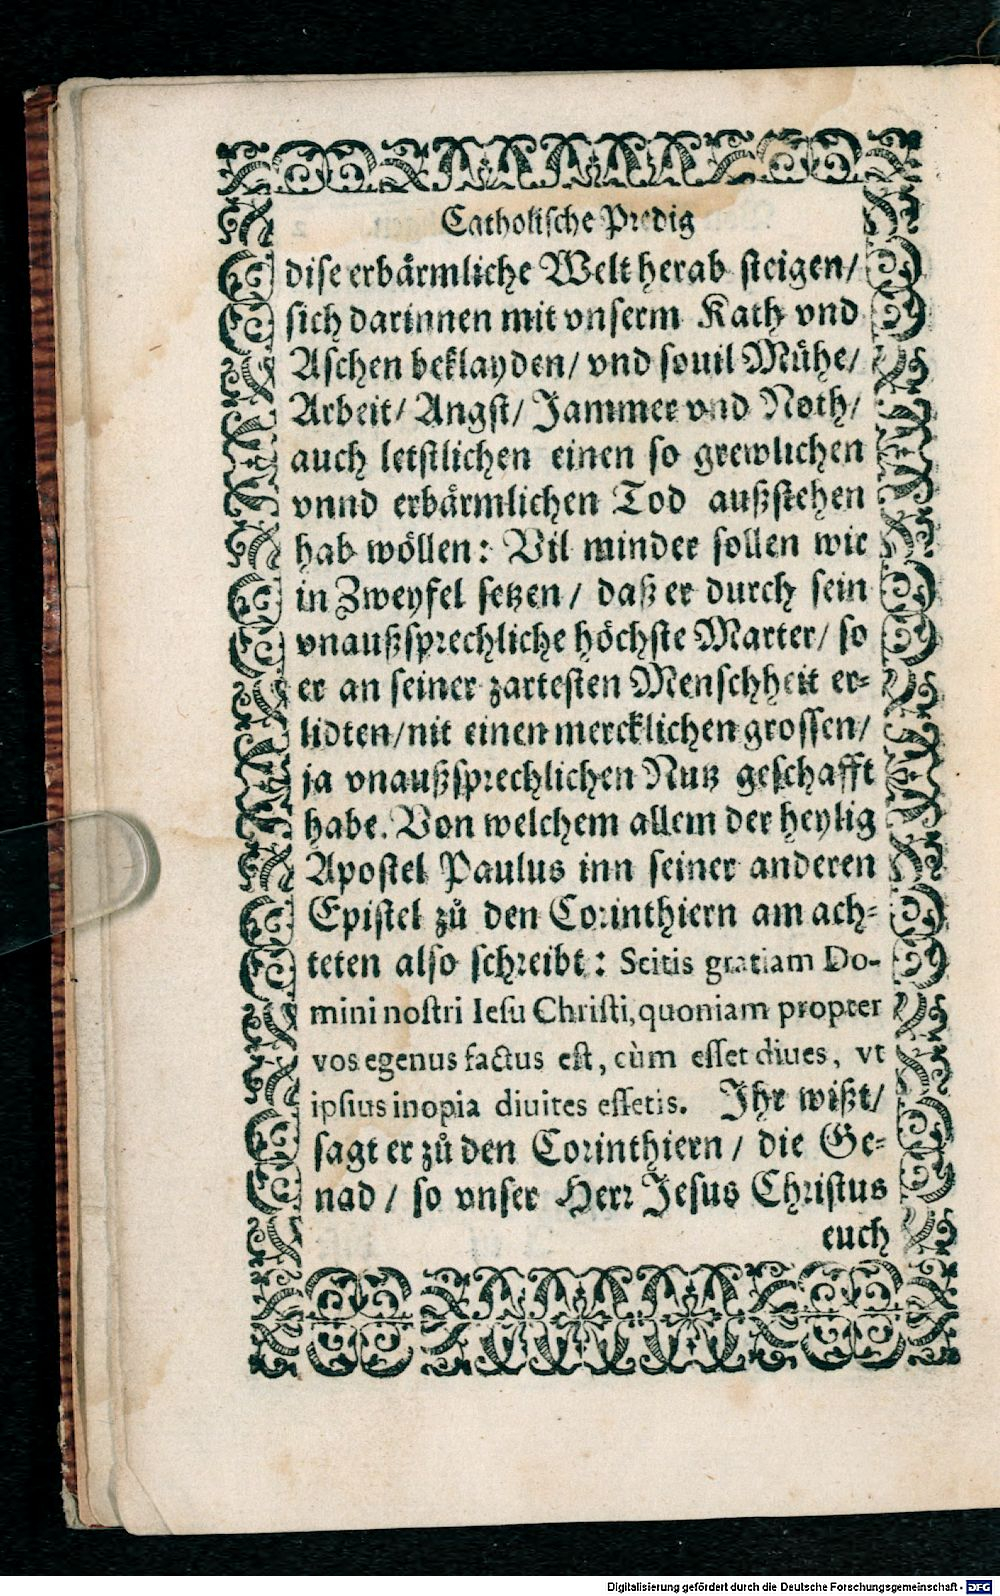 Catholische Predig
dise erbärmliche Welt herab steigen/
sich darinnen mit vnserm Kath vnd
Aschen beklayden/ vnd souil Mühe/
Arbeit/ Angst/ Jammer vnd Noth/
auch letstlichen einen so grewlichen
vnnd erbärmlichen Tod außstehen
hab wöllen: Vil minder sollen wir
in Zweyfel setzen/ daß er durch sein
vnaußsprechliche höchste Marter/ so
er an seiner zartesten Menschheit er-
lidten/nit einen mercklichen grossen/
ja vnaußsprechlichen Nutz geschafft
habe. Von welchem allem der heylig
Apostel Paulus inn seiner anderen
Epistel zů den Corinthiern am ach-
teten also schreibt: Scitis gratiam Do-
mini nostri Iesu Christi, quoniam propter
vos egenus factus est, cùm esset diues, vt
ipsius inopia diuites essetis. Ihr wißt/
sagt er zů den Corinthiern/ die Ge-
nad/ so vnser Herr Jesus Christus
euch
Digitalisierung gefördert durch die Deutsche Forschungsgemeinschaft - DFG